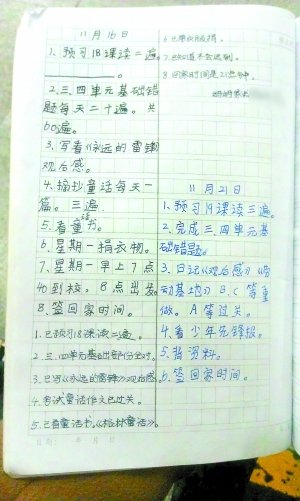 11月16日
1、预习18课读二遍
。
2、三、四单元基础错
题每天二十遍。共
60遍。
3、写看《永远的雷锋》
观后感。
4、摘抄童话每天一
篇。三遍
5、看童话书。
6、星期一捐衣物。
7、星期一早上7点
40到校，8点出发。
8、签回家时间。
1.已预习18课读二遍。
2.三、四单元基础部分全对。
3.已写《永远的雷锋》观后感。
4.考试童话作文已过关。
5.已看童话书，《格林童话》。
6.已带衣服捐。
7.已知道不会迟到。
8.回家时间是21点
11月21日
1、预习19课读三遍。
2、完成三、四单元基
础错题。
3、日记《观后感》
动基地》B、C等重
做。A等过关。
4、看少年先锋报。
5、背资料。
6、签回家时间。
日期： 年 月 日